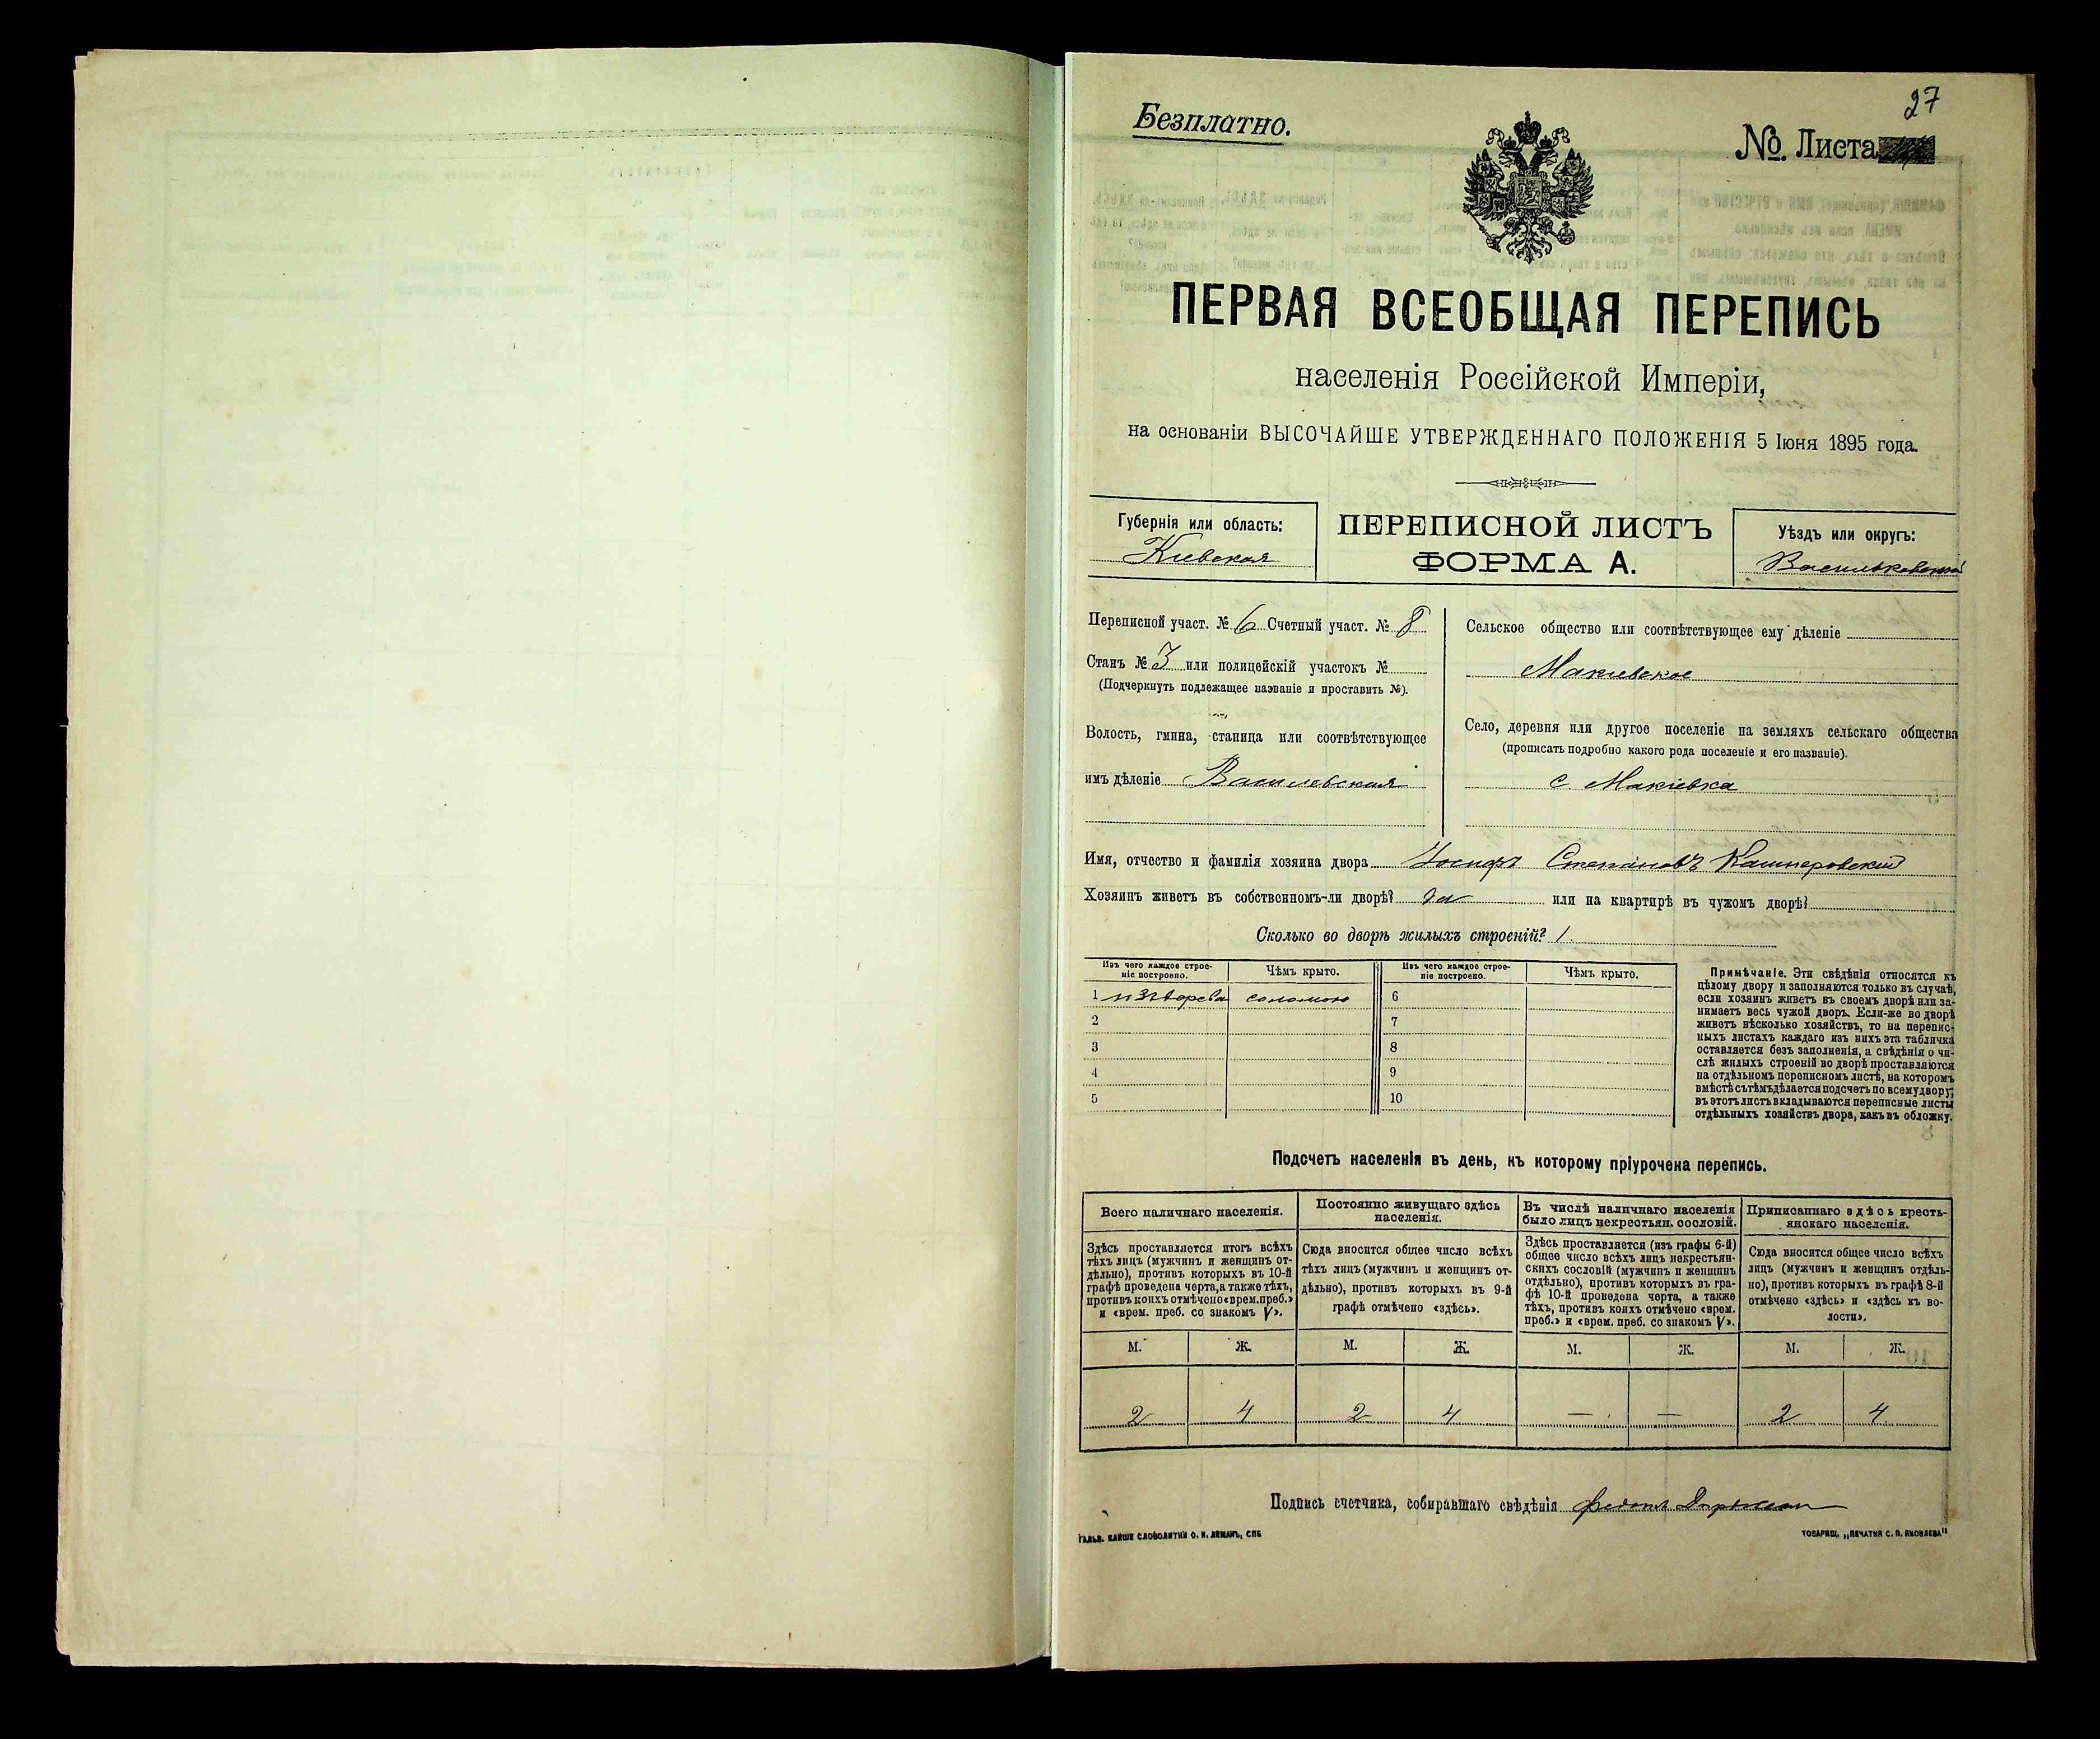 27
Безплатно.
№. Листа
ПЕРВАЯ ВСЕОБЩАЯ ПЕРЕПИСЬ
населенія Россійской Имперіи,
на основаніи ВЫСОЧАЙШЕ УТВЕРЖДЕННАГО ПОЛОЖЕНІЯ 5 Іюня 1895 года.
Губернія или область:
Кіевская
ПЕРЕПИСНОЙ ЛИСТЪ
ФОРМА А.
Уѣздъ или округъ:
Васильковскій
Переписной участ. № 6 Счетный участ. № 8
Станъ № 3 или полицейскій участокъ №
(Подчеркнуть подлежащее названіе и проставить №).
Волость, гмина, станица или соотвѣтствующее
имъ дѣленіе Василевская
Сельское общество или соотвѣтствующее ему дѣленіе
Макіевское
Село, деревня или другое поселеніе на земляхъ сельскаго общества
(прописать подробно какого рода поселеніе и его названіе).
с. Макіевка
Имя, отчество и фамилія хозяина двора Іосифъ Степановъ Кашперовскій
Хозяинъ живетъ въ собственномъ-ли дворѣ? да или на квартирѣ въ чужомъ дворѣ?
Сколько во дворѣ жилыхъ строеній? 1.
Изъ чего каждое строе-
ніе построено.
Чѣмъ крыто.
Изъ чего каждое строе-
ніе построено.
Чѣмъ крыто.
1 изъ дерева соломою 6
2 7
3 8
4 9
5 10
Примѣчаніе. Эти свѣдѣнія относятся къ
цѣлому двору и заполняются только въ случаѣ,
если хозяинъ живетъ въ своемъ дворѣ или за-
нимаетъ весь чужой дворъ. Если-же во дворѣ
живетъ нѣсколько хозяйствъ, то на перепис-
ныхъ листахъ каждаго изъ нихъ эта табличка
оставляется безъ заполненія, а свѣдѣнія о чи-
слѣ жилыхъ строеній во дворѣ проставляются
на отдѣльномъ переписномъ листѣ, на которомъ
вмѣстѣ съ тѣмъ дѣлается подсчетъ по всему двору;
въ этотъ листъ вкладываются переписные листы
отдѣльныхъ хозяйствъ двора, какъ въ обложку.
Подсчетъ населенія въ день, къ которому пріурочена перепись.
Всего наличнаго населенія.
Здѣсь проставляется итогъ всѣхъ
тѣхъ лицъ (мужчинъ и женщинъ от-
дѣльно), противъ которыхъ въ 10-й
графѣ проведена черта, а также тѣхъ,
противъ коихъ отмѣчено «врем. преб.»
и «врем. преб. со знакомъ V».
Постоянно живущаго здѣсь
населенія.
Сюда вносится общее число всѣхъ
тѣхъ лицъ (мужчинъ и женщинъ от-
дѣльно), противъ которыхъ въ 9-й
графѣ отмѣчено «здѣсь».
Въ числѣ наличнаго населенія
было лицъ некрестьян. сословій.
Здѣсь проставляется (изъ графы 6-й)
общее число всѣхъ лицъ некрестьян-
скихъ сословій (мужчинъ и женщинъ
отдѣльно), противъ которыхъ въ гра-
фѣ 10-й проведена черта, а также
тѣхъ, противъ коихъ отмѣчено «врем.
преб.» и «врем. преб. со знакомъ V».
Приписаннаго здѣсь кресть-
янскаго населенія.
Сюда вносится общее число всѣхъ
лицъ (мужчинъ и женщинъ отдѣль-
но), противъ которыхъ въ графѣ 8-й
отмѣчено «здѣсь» и «здѣсь къ во-
лости».
М. Ж. М. Ж. М. Ж. М. Ж.
2 4 2 4 — — 2 4
Подпись счетчика, собиравшаго свѣдѣнія
ГАЛЬВ. КЛИШЕ СЛОВОЛИТНИ О. И. ЛЕМАНЪ, СПБ
ТОВАРИЩ. „ПЕЧАТНЯ С. П. ЯКОВЛЕВА"